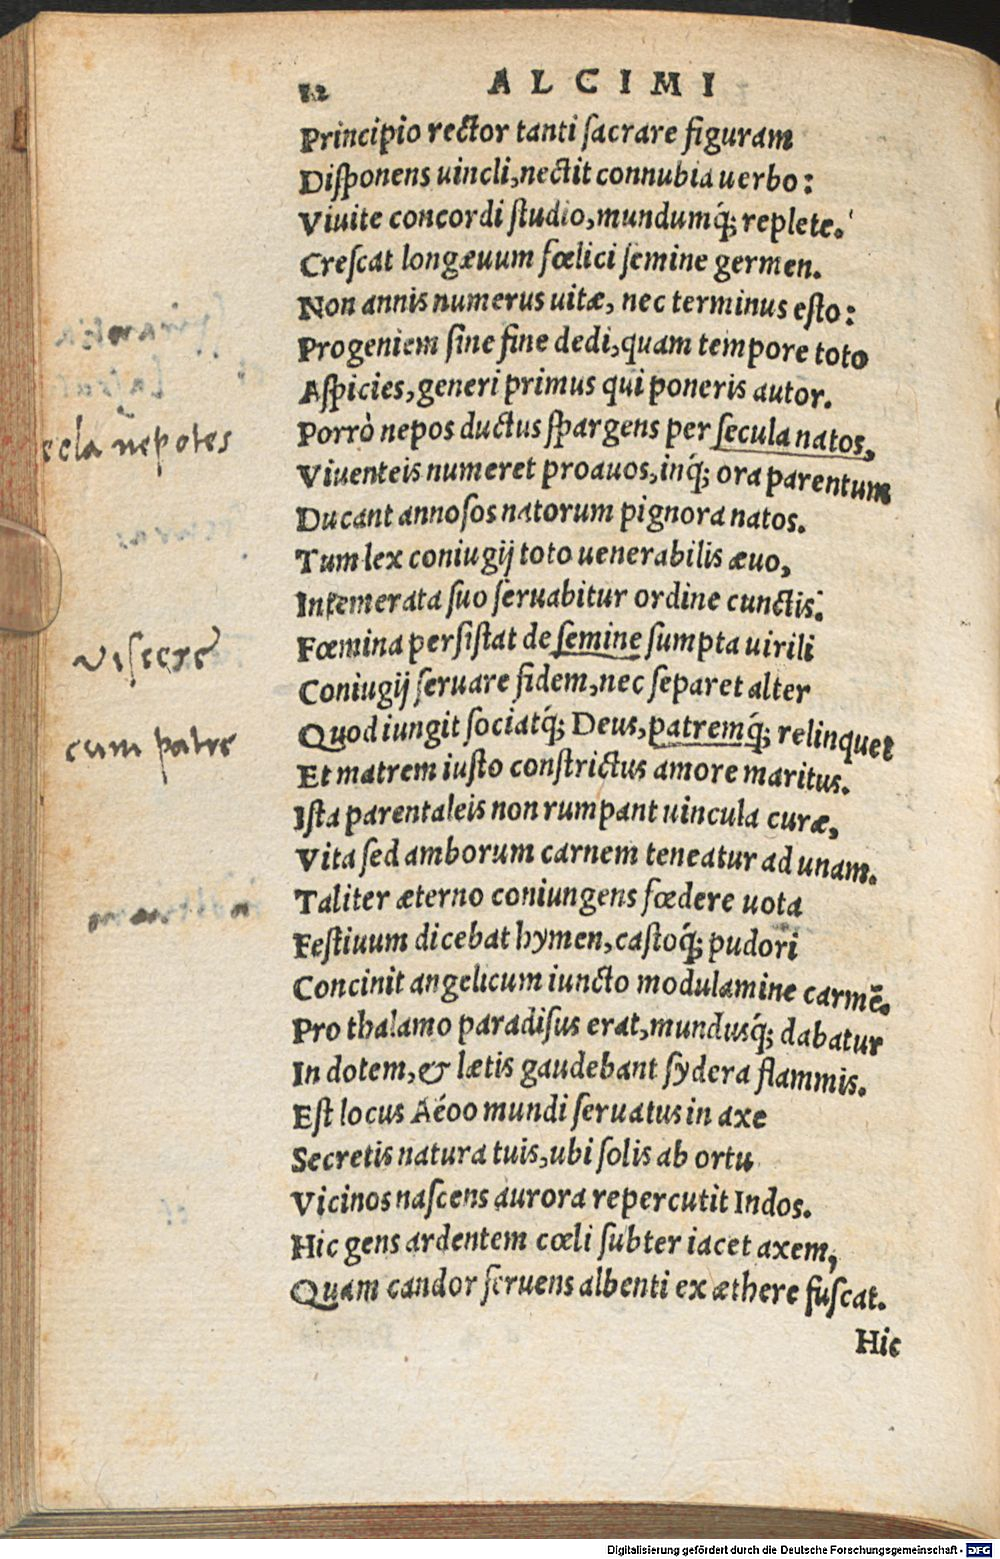 12 ALCIMI
Principio rector tanti sacrare figuram
Disponens uincli, nectit connubia uerbo:
Viuite concordi studio, mundumq́; replete.
Crescat longæuum fœlici semine germen.
Non annis numerus uitæ, nec terminus esto:
Progeniem sine fine dedi, quam tempore toto
Aspicies, generi primus qui poneris autor.
Porrò nepos ductus spargens per secula natos,
ecla nepotes
Viuenteis numeret proauos, inq́; ora parentum
Ducant annosos natorum pignora natos.
Tum lex coniugij toto uenerabilis æuo,
Intemerata suo seruabitur ordine cunctis.
Fœmina persistat de semine sumpta uirili
viscere
Coniugij seruare fidem, nec separet alter
Quod iungit sociatq́; Deus, patremq́; relinquet
cum patre
Et matrem iusto constrictus amore maritus.
Ista parentaleis non rumpant uincula curæ,
Vita sed amborum carnem teneatur ad unam.
Taliter æterno coniungens fœdere uota
Festiuum dicebat hymen, castoq́; pudori
Concinit angelicum iuncto modulamine carmē.
Pro thalamo paradisus erat, mundusq́; dabatur
In dotem, & lætis gaudebant sydera flammis.
Est locus Aéoo mundi seruatus in axe
Secretis natura tuis, ubi solis ab ortu
Vicinos nascens aurora repercutit Indos.
Hic gens ardentem cœli subter iacet axem,
Quam candor feruens albenti ex æthere fuscat.
Hic
Digitalisierung gefördert durch die Deutsche Forschungsgemeinschaft - DFG